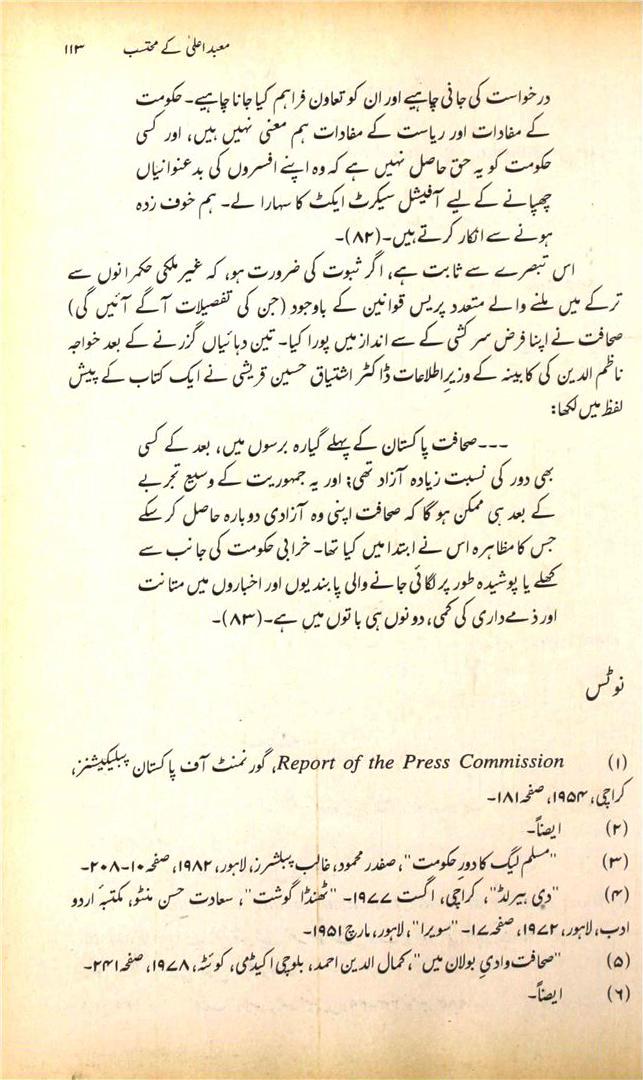 معبد اعلیٰ کے محتسب ۱۱۳
درخواست کی جانی چاہیے اور ان کو تعاون فراہم کیا جانا چاہیے۔ حکومت
کے مفادات اور ریاست کے مفادات ہم معنی نہیں ہیں، اور کسی
حکومت کو یہ حق حاصل نہیں ہے کہ وہ اپنے افسروں کی بدعنوانیاں
چھپانے کے لیے آفیشل سیکرٹ ایکٹ کا سہارا لے۔ ہم خوف زدہ
ہونے سے انکار کرتے ہیں۔ (۸۲)۔
اس تبصرے سے ثابت ہے، اگر ثبوت کی ضرورت ہو، کہ غیرملکی حکمرانوں سے
ترکے میں ملنے والے متعدد پریس قوانین کے باوجود (جن کی تفصیلات آگے آئیں گی)
صحافت نے اپنا فرض سرکشی کے سے انداز میں پورا کیا۔ تین دہائیاں گزرنے کے بعد خواجہ
ناظم الدین کی کابینہ کے وزیرِاطلاعات ڈاکٹر اشتیاق حسین قریشی نے ایک کتاب کے پیش
لفظ میں لکھا:
۔۔۔صحافت پاکستان کے پہلے گیارہ برسوں میں، بعد کے کسی
بھی دور کی نسبت زیادہ آزاد تھی؛ اور یہ جمہوریت کے وسیع تجربے
کے بعد ہی ممکن ہو گا کہ صحافت اپنی وہ آزادی دوبارہ حاصل کر سکے
جس کا مظاہرہ اس نے ابتدا میں کیا تھا۔ خرابی حکومت کی جانب سے
کھلے یا پوشیدہ طور پر لگائی جانے والی پابندیوں اور اخباروں میں متانت
اور ذمے داری کی کمی، دونوں ہی باتوں میں ہے۔ (۸۳)۔
نوٹس
(۱) Report of the Press Commission، گورنمنٹ آف پاکستان پبلیکیشنز،
کراچی، ۱۹۵۴، صفحہ ۱۸۱۔
(۲) ایضاً۔
(۳) "مسلم لیگ کا دورِ حکومت"، صفدر محمود، غالب پبلشرز، لاہور، ۱۹۸۲، صفحہ ۱۰-۲۰۸۔
(۴) "دی ہیرلڈ"، کراچی، اگست ۱۹۷۷۔ "ٹھنڈا گوشت"، سعادت حسن منٹو، مکتبۂ اردو
ادب، لاہور، ۱۹۷۲، صفحہ ۱۷۔ "سویرا"، لاہور، مارچ ۱۹۵۱۔
(۵) "صحافت وادیِ بولان میں"، کمال الدین احمد، بلوچی اکیڈمی، کوئٹہ، ۱۹۷۸، صفحہ ۲۴۱۔
(۶) ایضاً۔